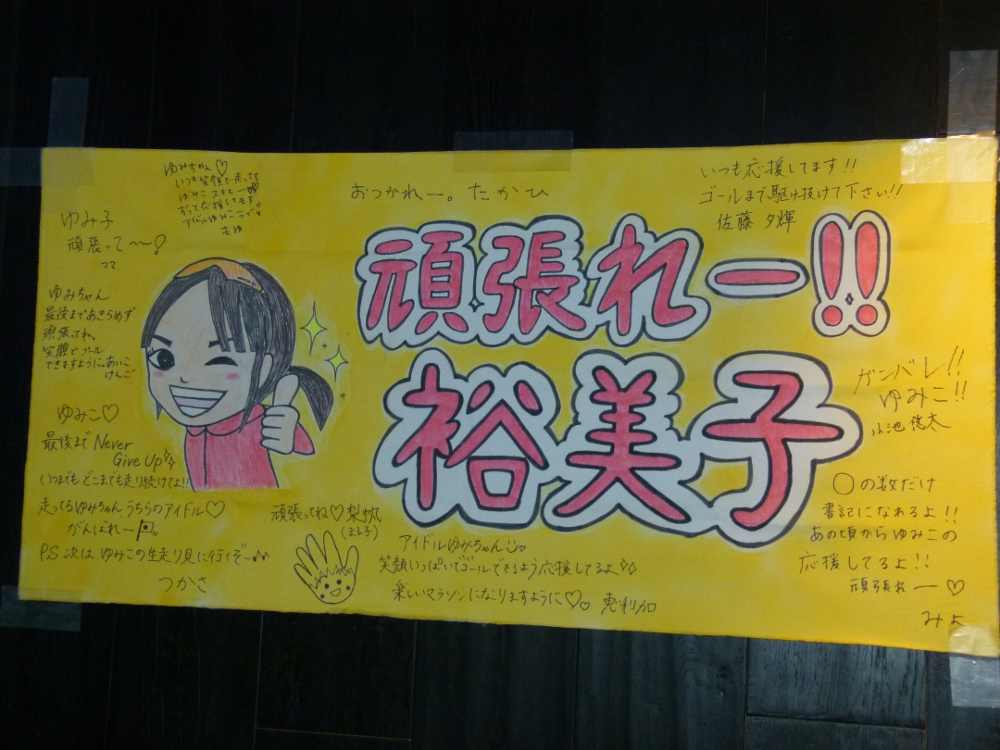 頑張れー!!
裕美子
ゆみちゃん♡
いつも笑顔で走ってる
ずっと応援してます。
おつかれー。たかひ
いつも応援してます!!
ゴールまで駆け抜けて下さい!!
佐藤 夕輝
ゆみ子
頑張って〜!
ゆみちゃん
最後まであきらめず
頑張ってね。
笑顔でゴール
できますように。あいこ
けんご
ゆみこ♡
最後まで Never
Give Up
いつまでもどこまでも走り続けてよ!!
走ってるゆみちゃん うちらのアイドル♡
がんばれー
P.S 次は ゆみこの生走り見に行くぞー♪
つかさ
頑張ってね♡梨帆
アイドルゆみちゃん
笑顔いっぱいでゴールできるよう応援してるよ
楽しいマラソンになりますように♡ 恵利加
ガンバレ!!
ゆみこ!!
小池 悠太
〇の数だけ
書記になれるよ!!
あの頃からゆみこの
応援してるよ!!
頑張れー♡
みよ